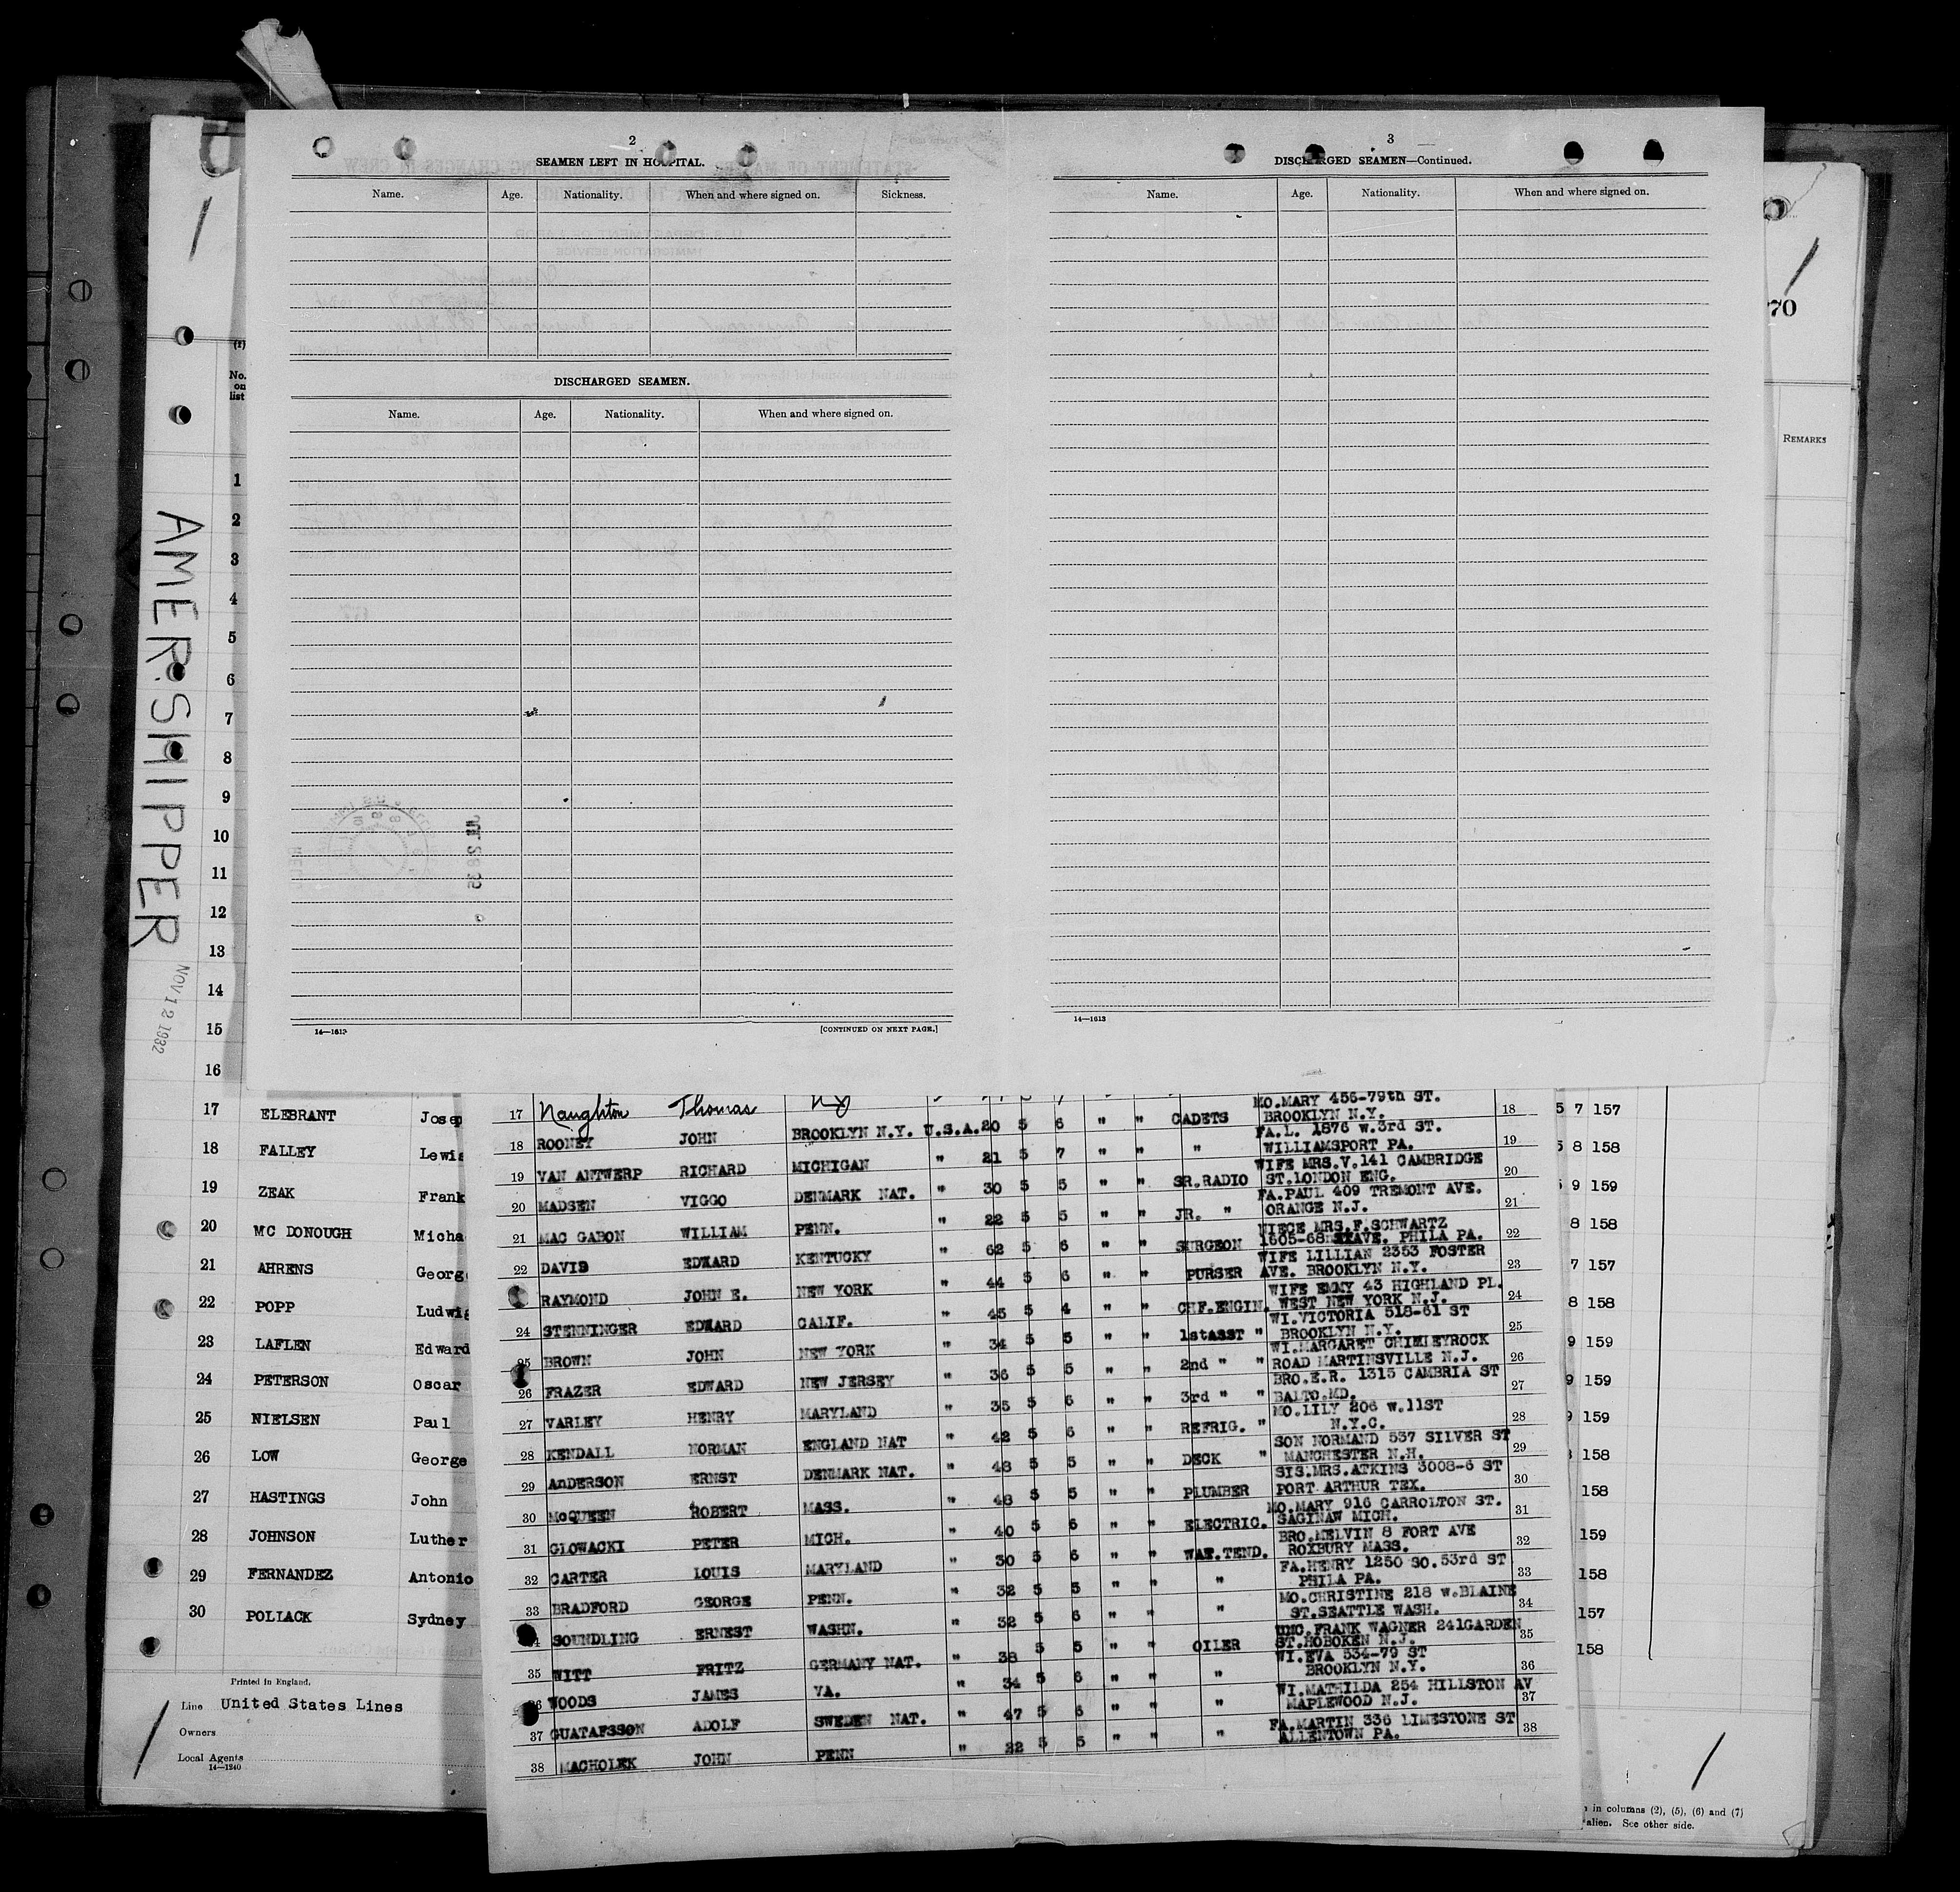 2
SEAMEN LEFT IN HOSPITAL.
Name. Age. Nationality. When and where signed on. Sickness.
DISCHARGED SEAMEN.
Name. Age. Nationality. When and where signed on.
14—1613
[CONTINUED ON NEXT PAGE.]
3
DISCHARGED SEAMEN—Continued.
Name. Age. Nationality. When and where signed on.
14—1613
70
REMARKS
AMER. SHIPPER
NOV 12 1932
(1)
No.
on
list
1
2
3
4
5
6
7
8
9
10
11
12
13
14
15
16
17 ELEBRANT Josep
18 FALLEY Lewis
19 ZEAK Frank
20 MC DONOUGH Micha
21 AHRENS George
22 POPP Ludwig
23 LAFLEN Edward
24 PETERSON Oscar
25 NIELSEN Paul
26 LOW George
27 HASTINGS John
28 JOHNSON Luther
29 FERNANDEZ Antonio
30 POLLACK Sydney
Printed in England.
Line United States Lines
Owners
Local Agents
14—1240
17 Naughton Thomas NY
MO.MARY 456-79th ST.
18 ROONEY JOHN BROOKLYN N.Y. U.S.A. 20 5 6 " " CADETS BROOKLYN N.Y. 18
FA.L. 1876 w.3rd ST.
19 VAN ANTWERP RICHARD MICHIGAN " 21 5 7 " " " WILLIAMSPORT PA. 19
WIFE MRS.V.141 CAMBRIDGE
20 MADSEN VIGGO DENMARK NAT. " 30 5 5 " " SR.RADIO ST.LONDON ENG. 20
FA.PAUL 409 TREMONT AVE.
21 MAC GABON WILLIAM PENN. " 22 5 5 " " JR. " ORANGE N.J. 21
NIECE MRS.F.SCHWARTZ
22 DAVIS EDWARD KENTUCKY " 62 5 6 " " SURGEON 1605-68 AVE. PHILA PA. 22
WIFE LILLIAN 2353 FOSTER
RAYMOND JOHN E. NEW YORK " 44 5 6 " " PURSER AVE. BROOKLYN N.Y. 23
WIFE EMMY 43 HIGHLAND PL.
24 STENNINGER EDWARD CALIF. " 45 5 4 " " CHF.ENGIN. WEST NEW YORK N.J. 24
WI.VICTORIA 518-61 ST
25 BROWN JOHN NEW YORK " 34 5 5 " " 1stASST " BROOKLYN N.Y. 25
WI.MARGARET CHIMLEYROCK
26 FRAZER EDWARD NEW JERSEY " 36 5 5 " " 2nd " " ROAD MARTINSVILLE N.J. 26
BRO.E.R. 1315 CAMBRIA ST
27 VARLEY HENRY MARYLAND " 35 5 6 " " 3rd " " BALTO.MD. 27
MO.LILY 206 w.11ST
28 KENDALL NORMAN ENGLAND NAT " 42 5 6 " " REFRIG. " N.Y.C. 28
SON NORMAND 537 SILVER ST
29 AnDERSON ERNST DENMARK NAT. " 48 5 5 " " DECK " MANCHESTER N.H. 29
SIS.MRS.ATKINS 3008-6 ST
30 McQUEEN ROBERT MASS. " 48 5 5 " " PLUMBER PORT ARTHUR TEX. 30
MO.MARY 916 CARROLTON ST.
31 GLOWACKI PETER MICH. " 40 5 6 " " ELECTRIC. SAGINAW MICH. 31
BRO.MELVIN 8 FORT AVE
32 CARTER LOUIS MARYLAND " 30 5 6 " " WAT.TEND. ROXBURY MASS. 32
FA.HENRY 1250 SO.53rd ST
33 BRADFORD GEORGE PENN. " 32 5 5 " " " PHILA PA. 33
MO.CHRISTINE 218 w.BLAINE
SOUNDLING ERNEST WASHN. " 32 5 6 " " " ST.SEATTLE WASH. 34
UNC.FRANK WAGNER 241GARDEN
35 WITT FRITZ GERMANY NAT. " 38 5 5 " " OILER ST.HOBOKEN N.J. 35
WI.EVA 534-79 ST
36 WOODS JAMES VA. " 34 5 6 " " " BROOKLYN N.Y. 36
WI.MATHILDA 254 HILLSTON AV
37 GUATAFSSON ADOLF SWEDEN NAT. " 47 5 6 " " " MAPLEWOOD N.J. 37
FA.MARTIN 336 LIMESTONE ST
38 MACHOLEK JOHN PENN " 22 5 5 " " " ALLENTOWN PA. 38
5 7 157
5 8 158
5 9 159
8 158
7 157
8 158
9 159
9 159
9 159
158
158
159
158
157
158
in columns (2), (5), (6) and (7)
alien. See other side.